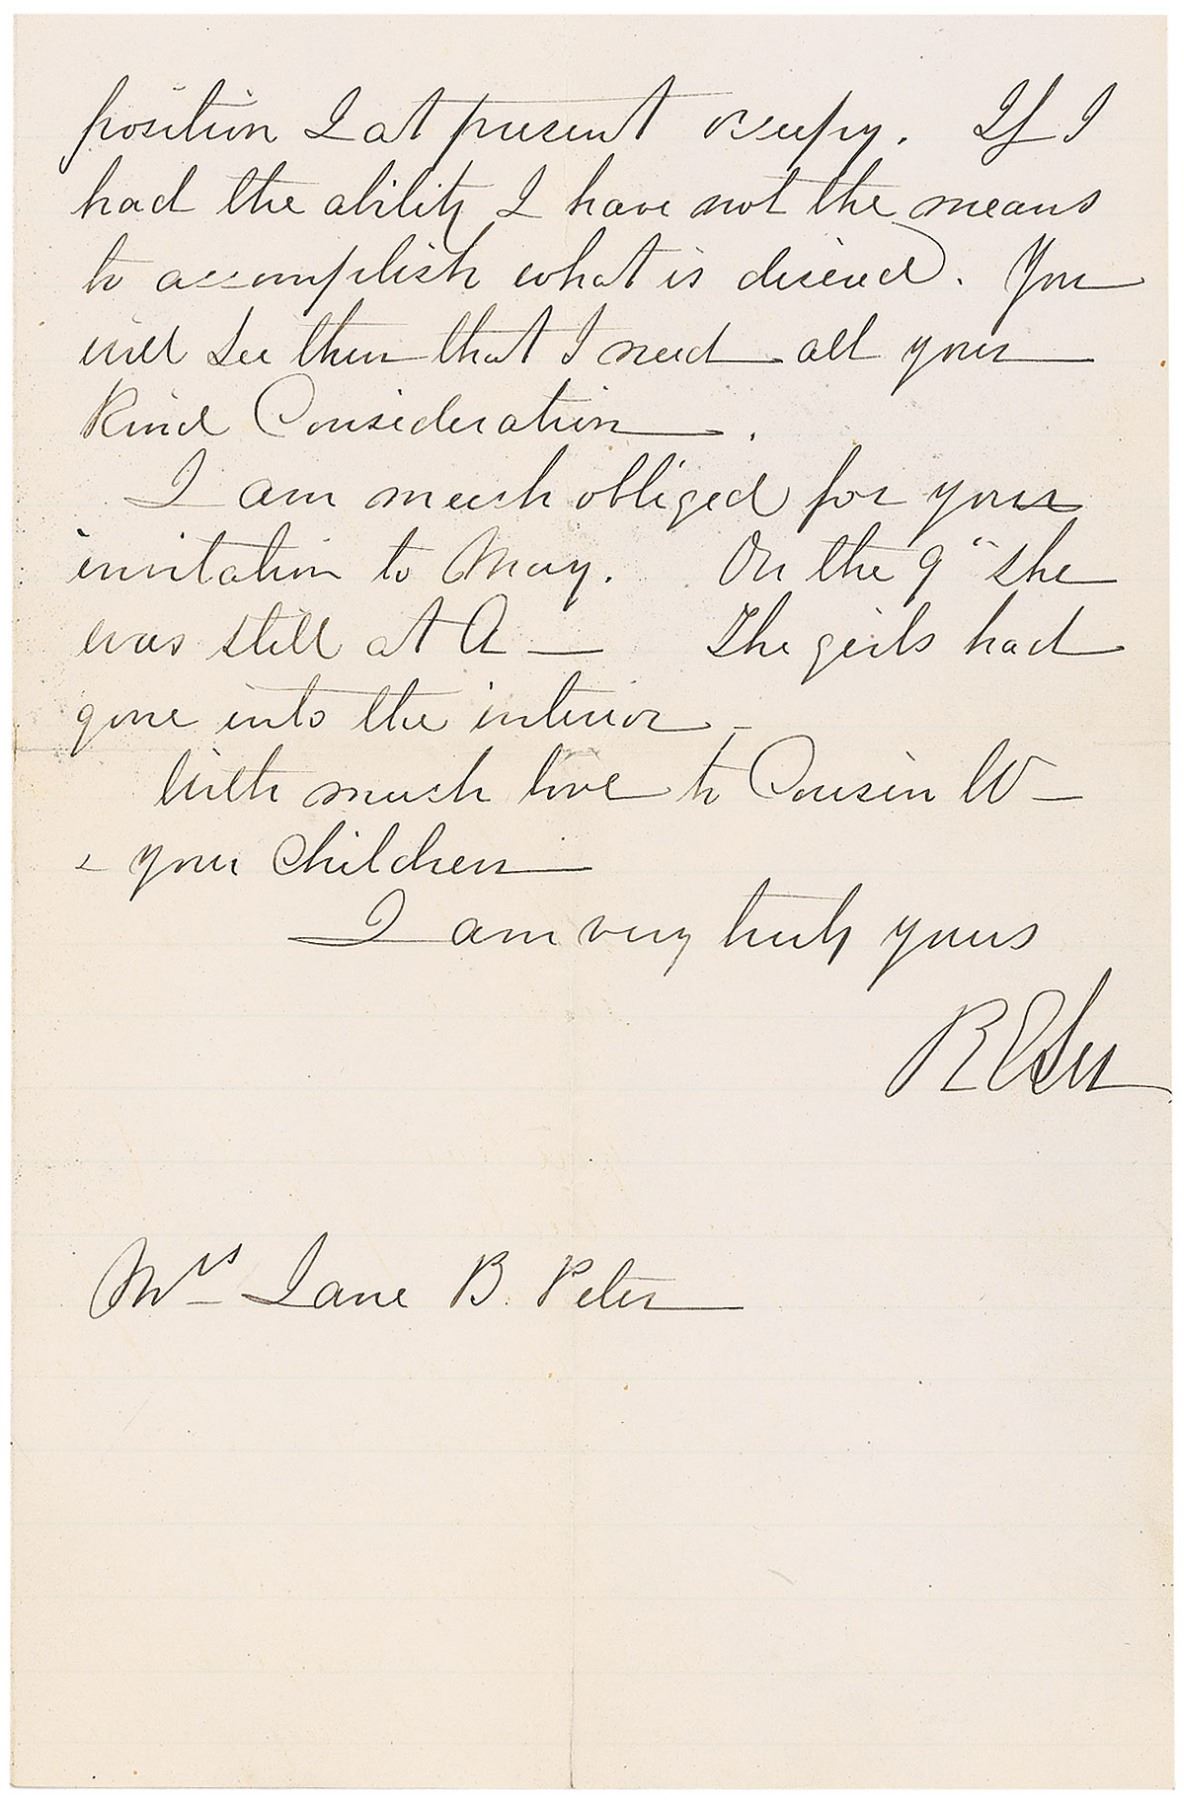 position I at present occupy. If I
had the ability I have not the means
to accomplish what is desired. You
will see then that I need all your
kind Consideration.
I am much obliged for your
invitation to Mary. On the 9" she
was still at A—
The girls had
gone into the interior—
With much love to Cousin W—
& your Children
I am very truly yours
RELee
Mrs Jane B. Peter